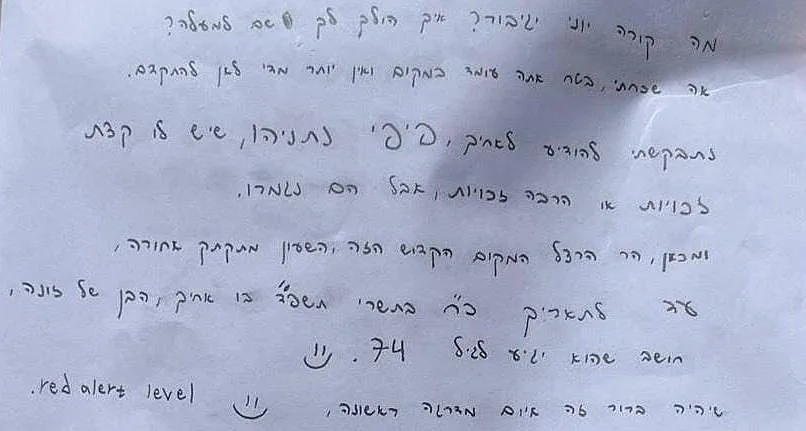 מה קורה יוני גיבור? איך הולך לך שם למעלה?
אה שכחתי, בטח אתה עומד במקום ואין יותר מדי לאן להתקדם.
נתבקשתי להודיע לאחיך, פיפי נתניהו, שיש לו קצת
זכויות או הרבה זכויות, אבל הם נגמרו.
ומכאן, הר הרצל המקום הקדוש הזה, השעון מתקתק אחורה,
עד לתאריך כ"ח בתשרי תשפ"ד בו אחיך, הבן של זונה,
חושב שהוא יגיע לגיל 74. :)
שיהיה ברור זה איום מדרגה ראשונה, :) red alert level.